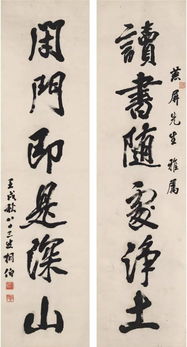 燕屏先生雅屬
讀書随處淨土
閉門即是深山
壬戌秋八十三叟桐伯